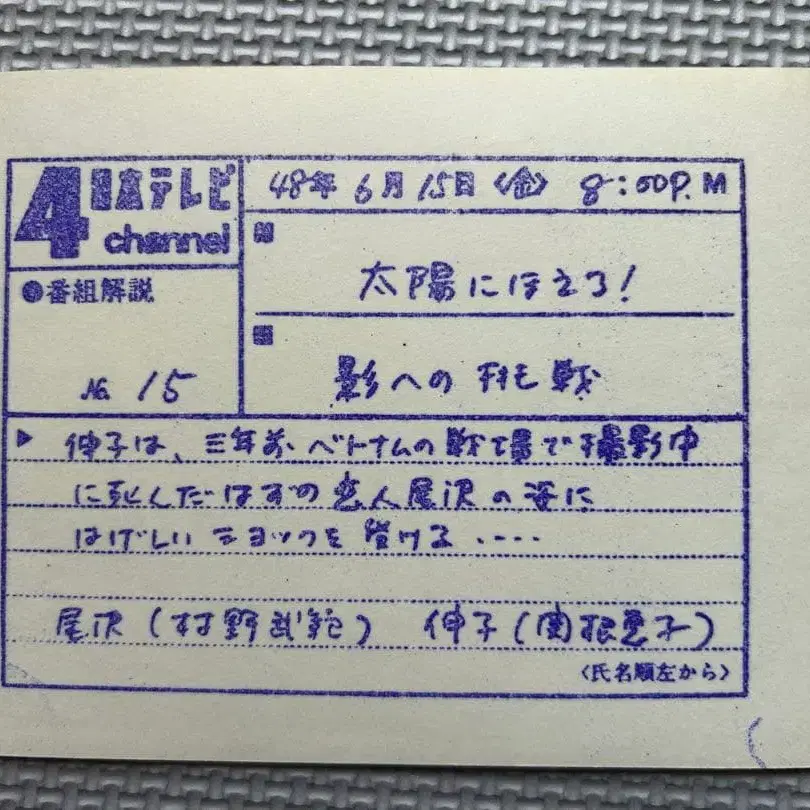 4 日本テレビ
channel
48年 6月 15日 〈金〉 8:00P.M
●番組解説
太陽にほえろ!
№ 15
影への挑戦
▶ 伸子は、三年前、ベトナムの戦場で撮影中
に死んだはずの恋人尾沢の姿に
はげしいショックを受ける ‥‥
尾沢(村野武範) 伸子(関根恵子)
〈氏名順左から〉